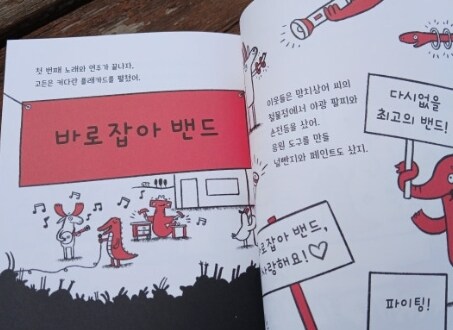 첫 번째 노래와 연주가 끝나자,
고든은 커다란 플래카드를 펼쳤어.
바로잡아 밴드
이웃들은 망치상어 씨의
철물점에서 야광 팔찌와
손전등을 샀어.
응원 도구를 만들
널빤지와 페인트도 샀지.
다시없을
최고의 밴드!
바로잡아 밴드,
사랑해요!♡
파이팅!